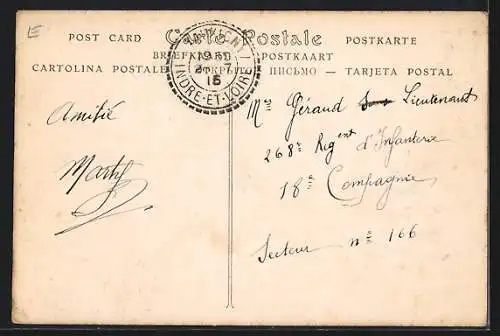 E
POST CARD Carte Postale POSTKARTE
BRIEFKAART POSTKAART
CARTOLINA POSTALE ОТКРЫТОЕ ПИСЬМО — TARJETA POSTAL
15
INDRE-ET-LOIRE
Amitié
Mr Géraud Lieutenant
268e Regent d'Infanterie
18e Compagnie
Secteur no 166